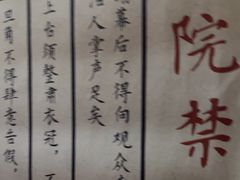 院禁
幕后不得向观众
人掌声足矣
上台须整肃衣冠，不
旦角不得肆意告假，